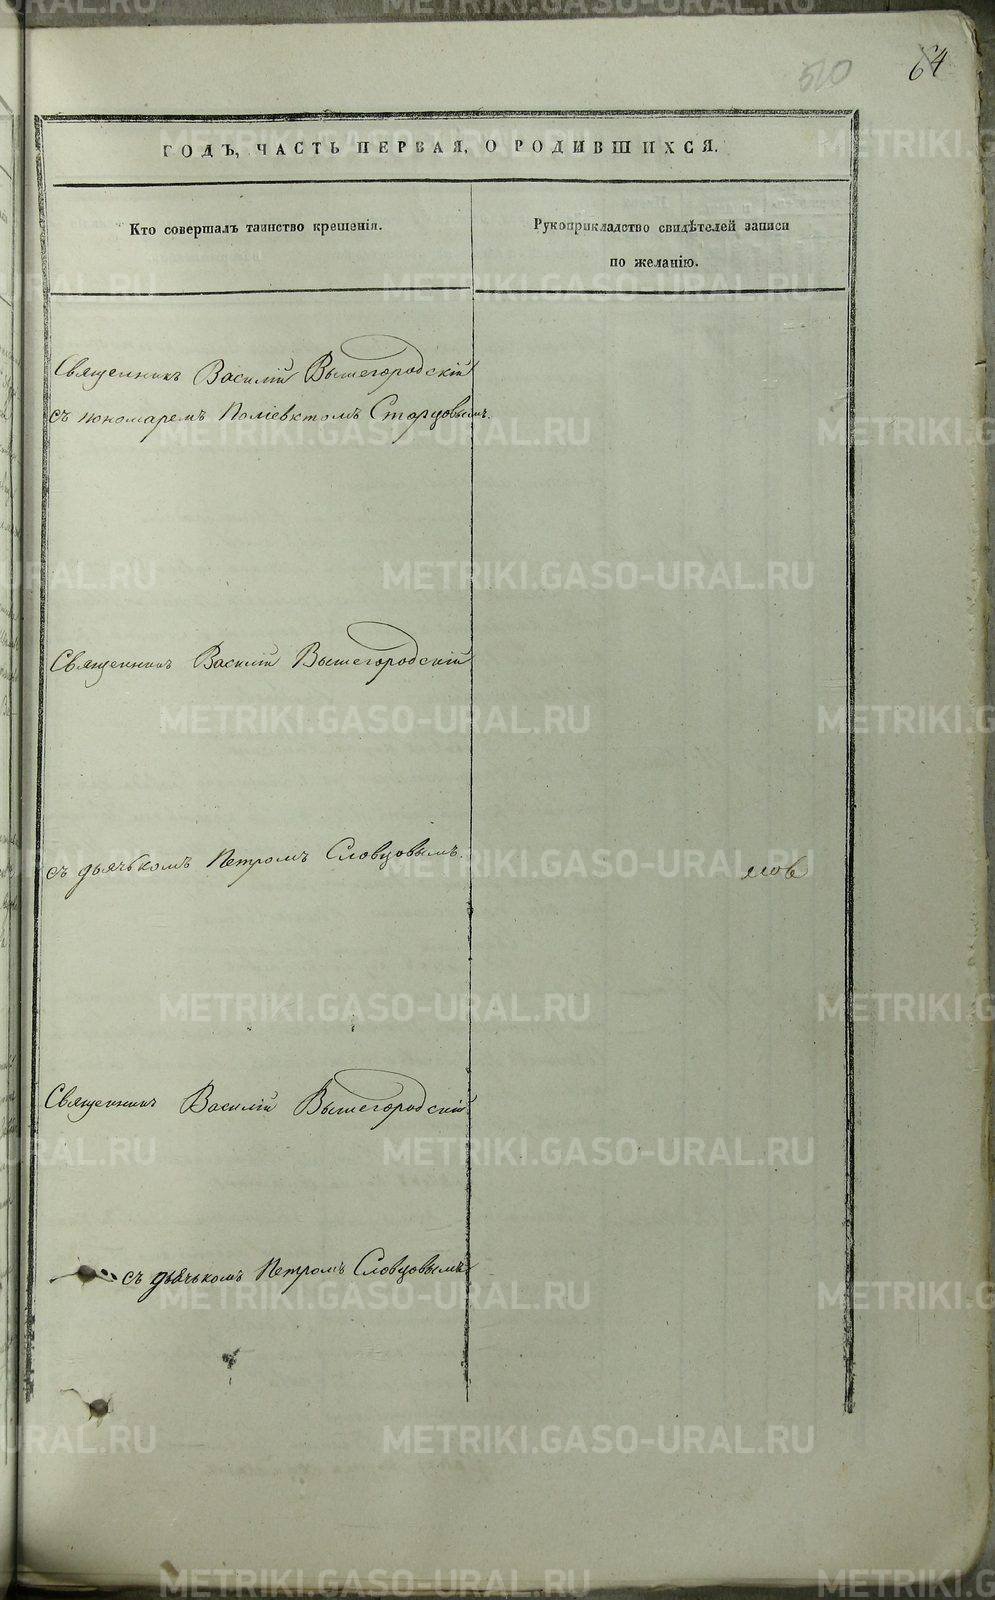 510
64
ГОДЪ, ЧАСТЬ ПЕРВАЯ, О РОДИВШИХСЯ.
Кто совершалъ таинство крещенія.
Рукоприкладство свидѣтелей записи
по желанію.
Священникъ Василій Вышегородскій
съ пономаремъ Поліевктомъ Старцовымъ.
Священникъ Василій Вышегородскій
съ дьячькомъ Петромъ Словцовымъ.
мов
Священникъ Василій Вышегородскій
съ дьячькомъ Петромъ Словцовымъ
METRIKI.GASO-URAL.RU